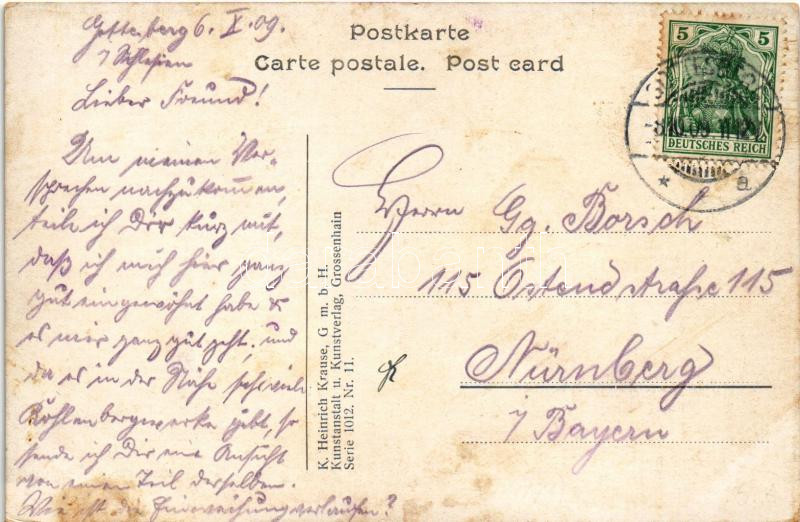 Gottesberg 6. X. 09.
i/Schlesien
Lieber Freund!
Um meinen Ver-
sprechen nachzukommen,
teile ich Dir kurz mit,
daß ich mich hier ganz
gut eingewöhnt habe &
es mir ganz gut geht, und
da es in der Nähe sehr viele
Kohlenbergwerke gibt, so
sende ich Dir eine Ansicht
von einem Teil derselben.
Wie ist die Einweihung verlaufen?
Postkarte
Carte postale. Post card
K. Heinrich Krause, G m b H.
Kunstanstalt u. Kunstverlag, Grossenhain
Serie 1012. Nr. 11.
5 5
DEUTSCHES REICH
a
Herrn Gg. Borsch
115 Ostendstraße 115
Nürnberg
i/Bayern